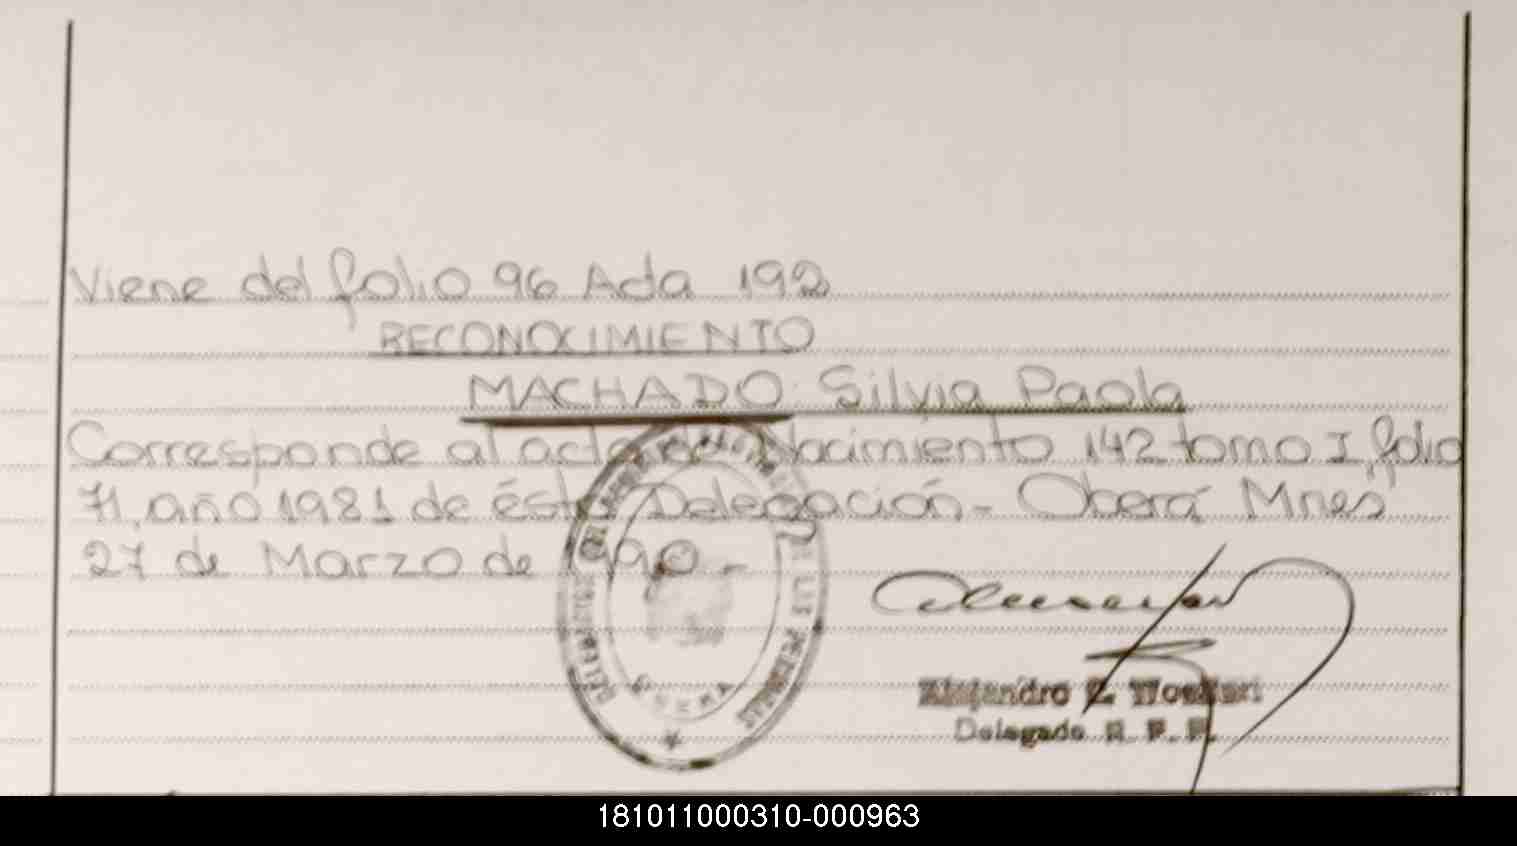 Viene del folio 96 Acta 192
RECONOCIMIENTO
MACHADO Silvia Paola
Corresponde al acta de Nacimiento 142 tomo I, folio
71, año 1981 de ésta Delegación - Oberá Mnes
27 de Marzo de 1990 -
Alejandro
Delegado R. P. P.
DE LAS PERSONAS
181011000310-000963